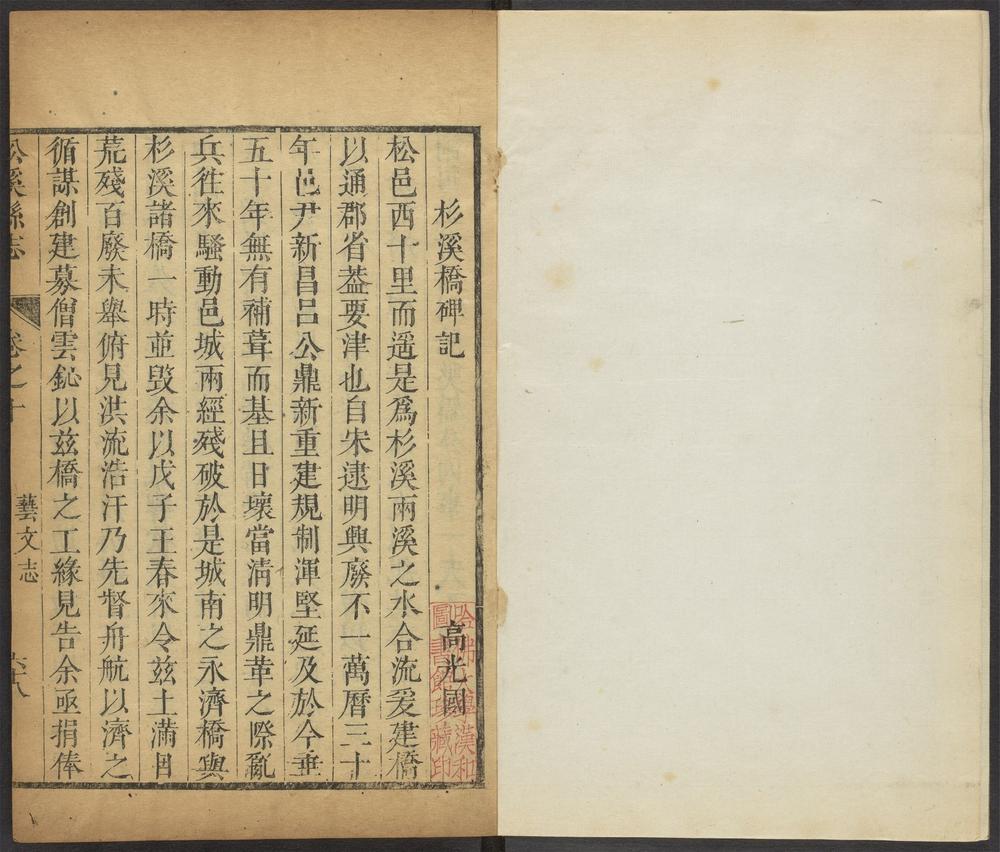 杉溪橋碑記
高光國
松邑西十里而遥是爲杉溪兩溪之水合流爰建橋
以通郡省葢要津也自宋逮明興廢不一萬曆三十
年邑尹新昌吕公鼎新重建規制渾堅延及於今垂
五十年無有補葺而基且日壞當淸明鼎革之際亂
兵徃來騷動邑城兩經殘破於是城南之永濟橋與
杉溪諸橋一時並毁余以戊子王春來令兹土滿目
荒殘百廢未舉俯見洪流浩汗乃先督舟航以濟之
循謀創建募僧雲鉍以兹橋之工緣見告余亟捐俸
松溪縣志
卷之十
藝文志
六十八
哈佛大學漢和
圖書館珍藏印